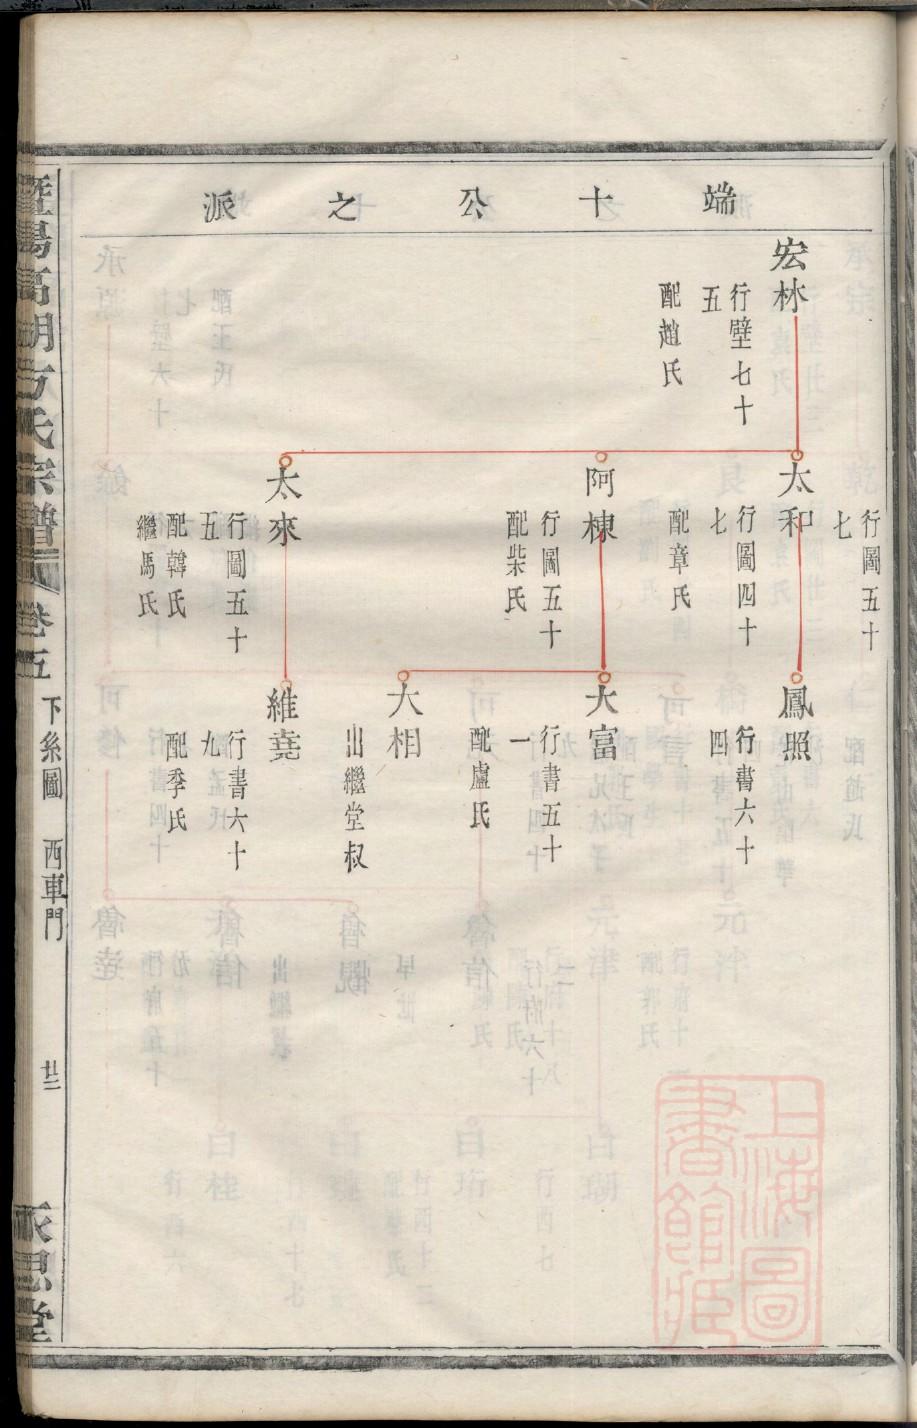 端十公之派
宏林
行壁七十
五
配趙氏
行圖五十
七
太和
行圖四十
七
配章氏
阿棟
行圖五十
配柴氏
太來
行圖五十
五
配韓氏
繼馬氏
鳳照
行書六十
四
大富
行書五十
一
配盧氏
大相
出繼堂叔
維堯
行書六十
九
配季氏
暨陽高湖方氏宗譜
卷五
下系圖
西車門
廿三
永思堂
上海圖
書館藏